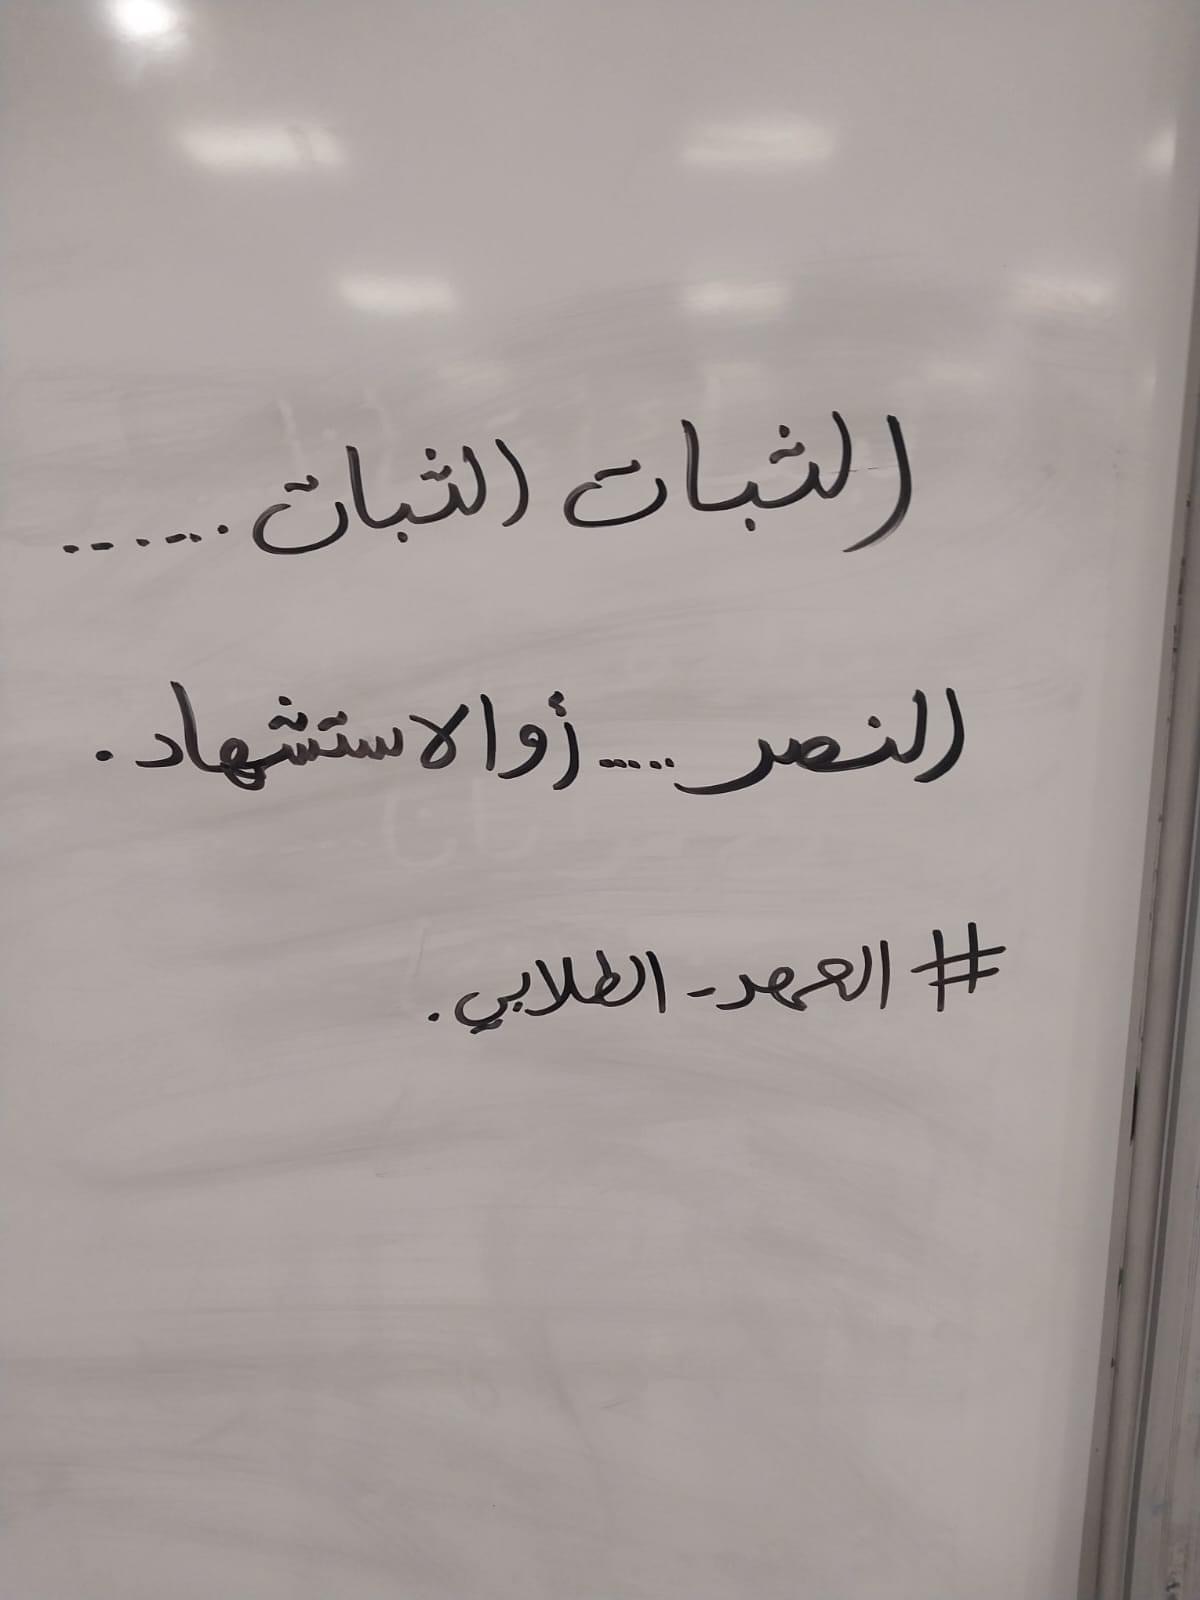 الثبات الثبات .......
النصر ..... أو الاستشهاد.
# العهد - الطلابي.